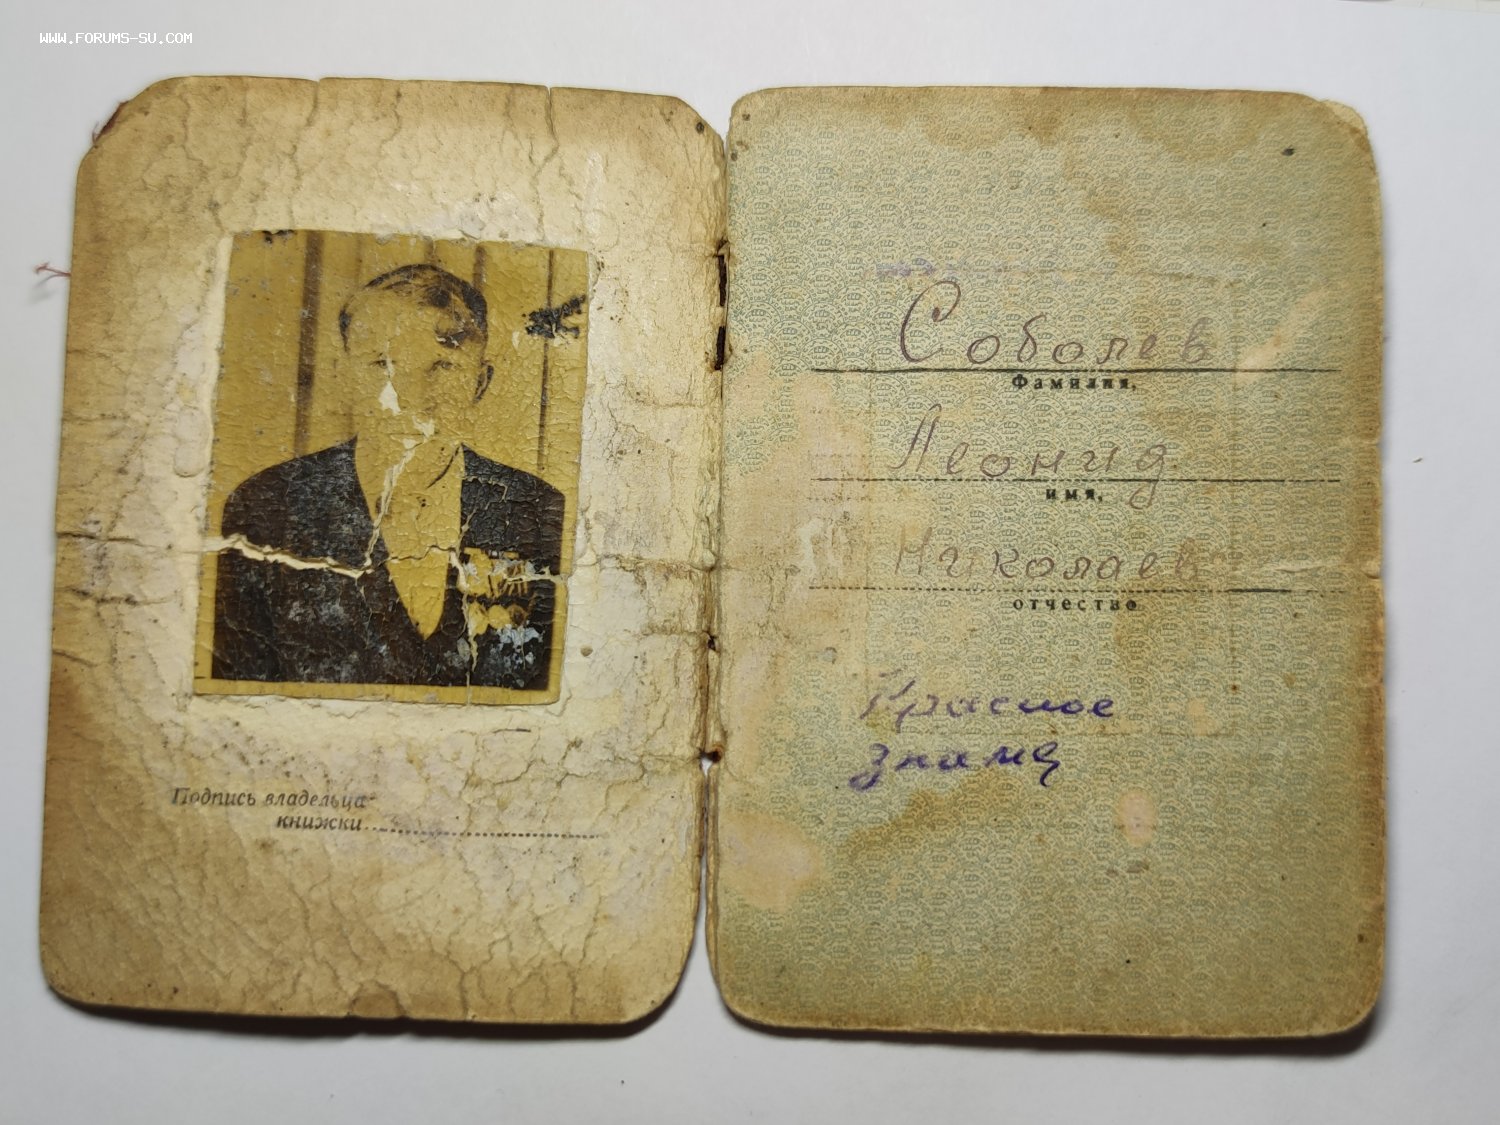 WWW.FORUMS-SU.COM
Подпись владельца
книжки
Соболев
Фамилия,
Леонид
имя,
Николаев
отчество
Красное
знамя